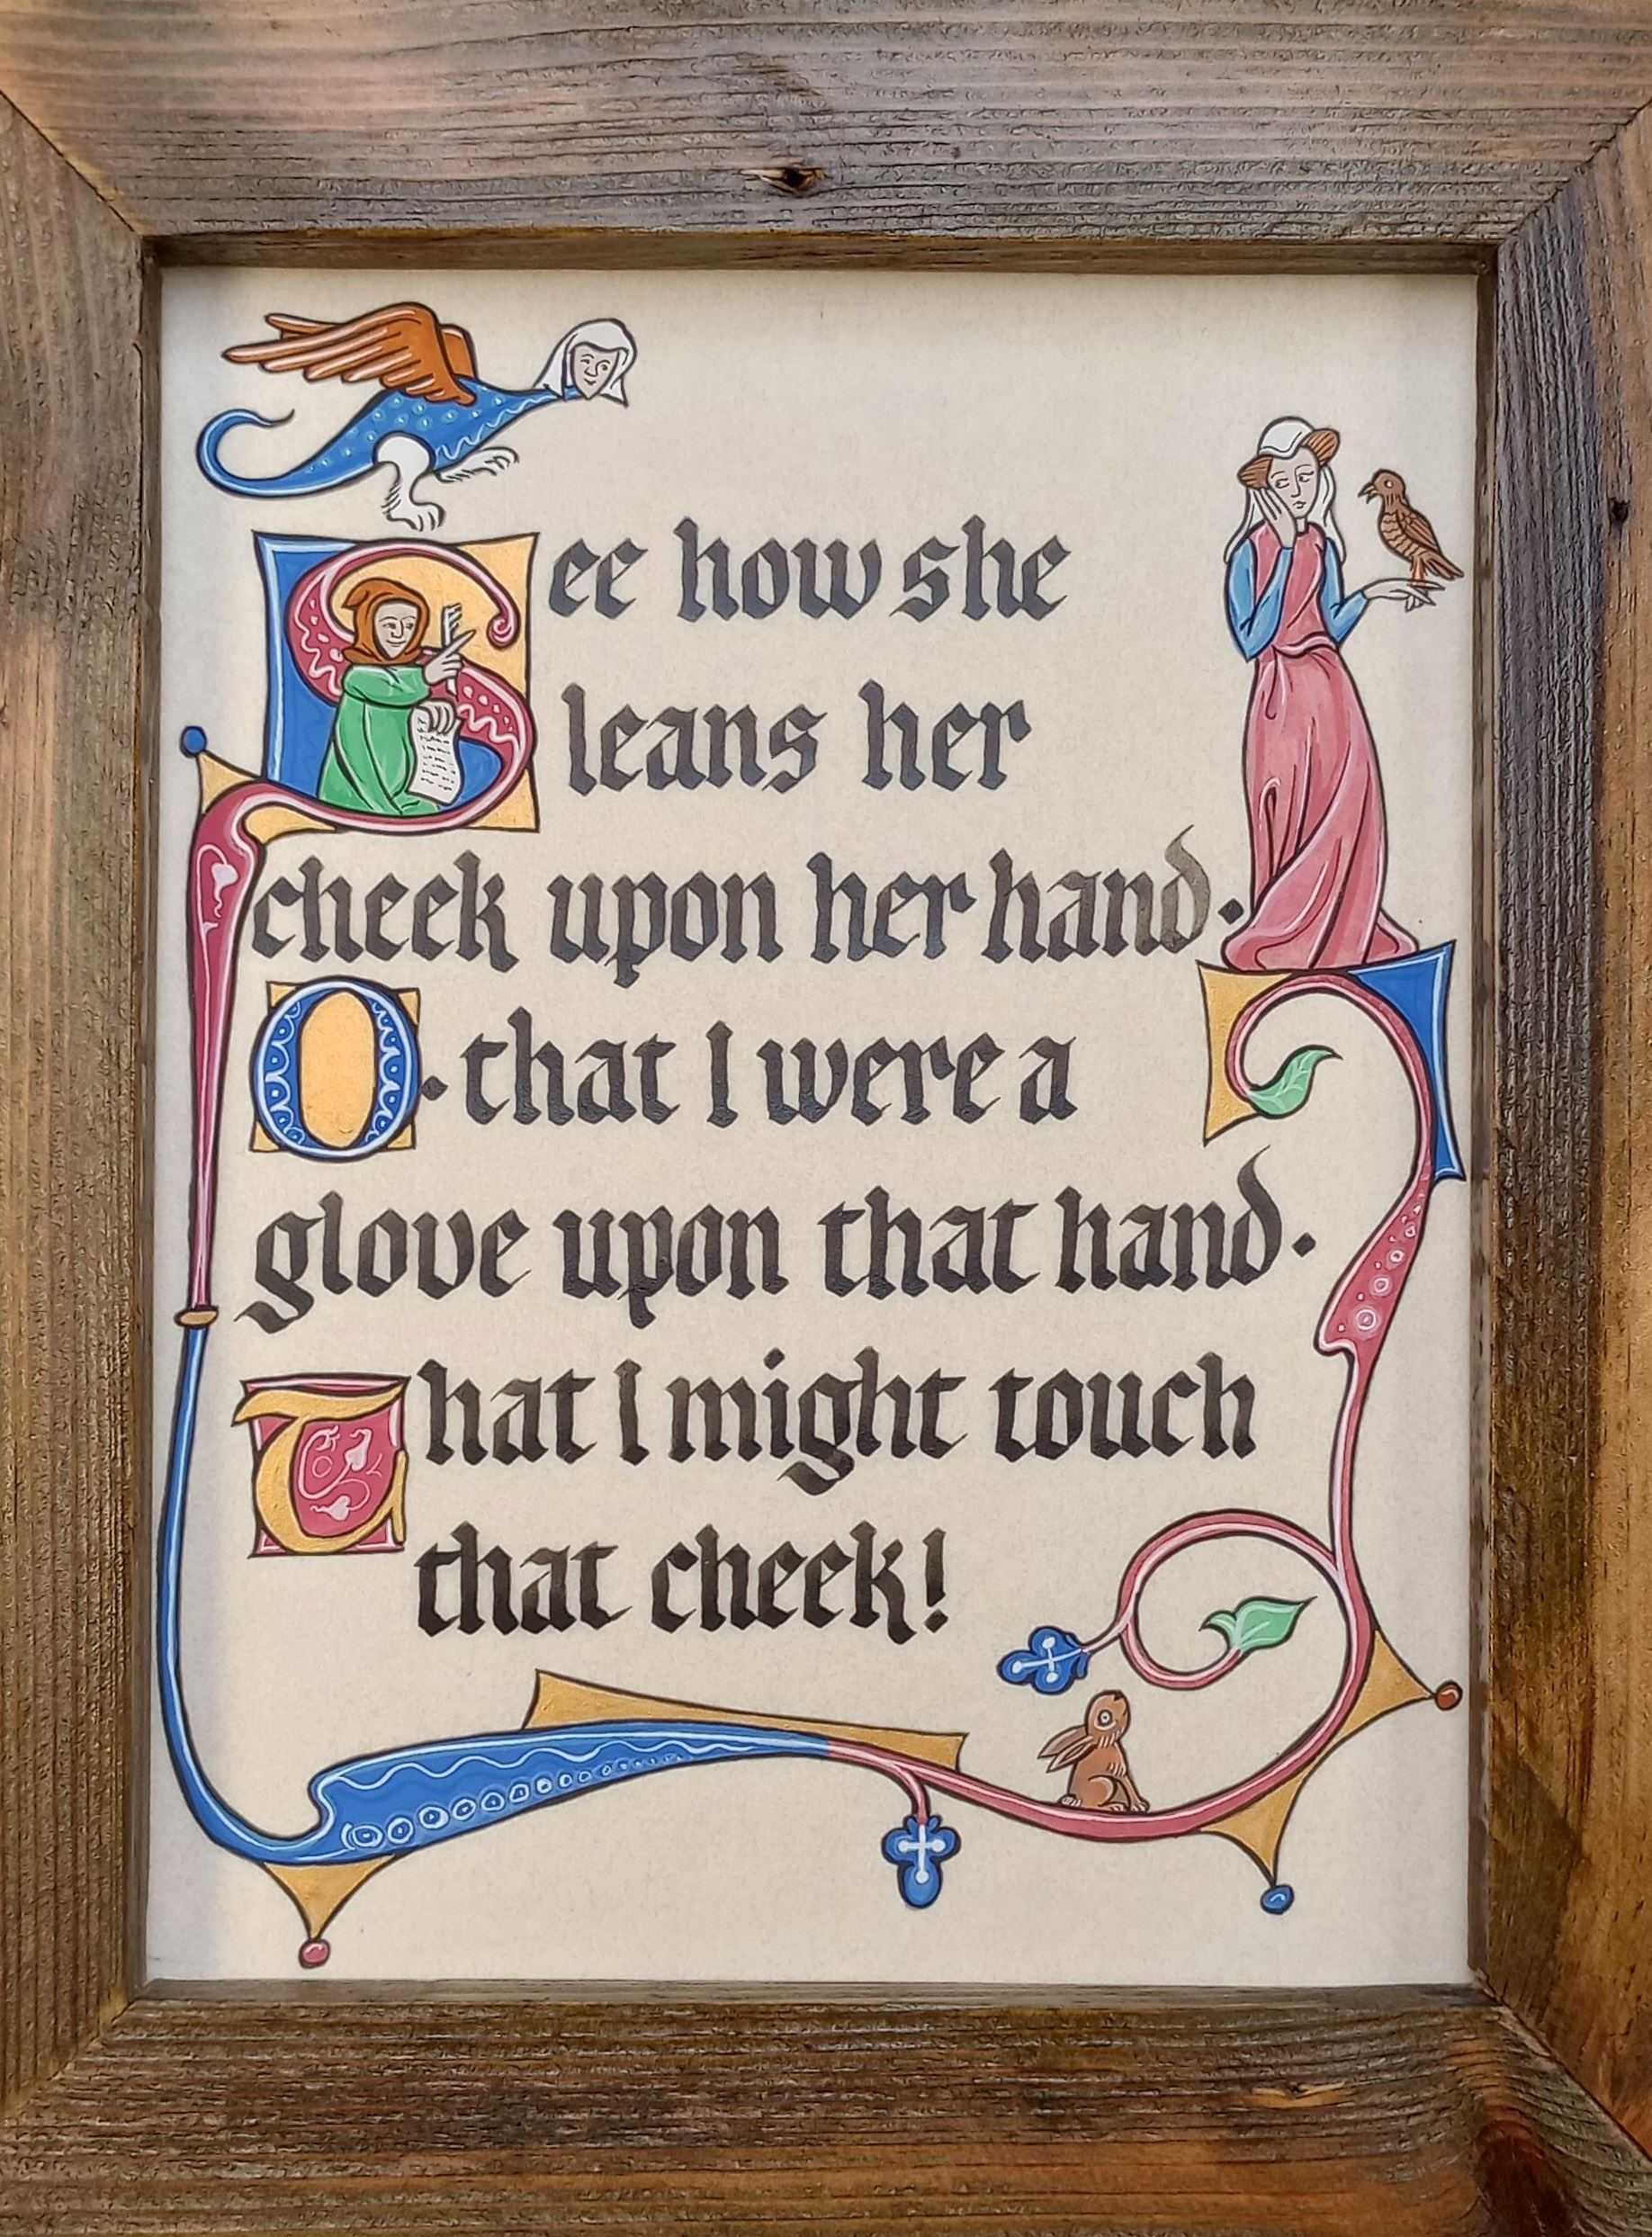 See how she
leans her
cheek upon her hand.
O. that I were a
glove upon that hand.
That I might touch
that cheek!